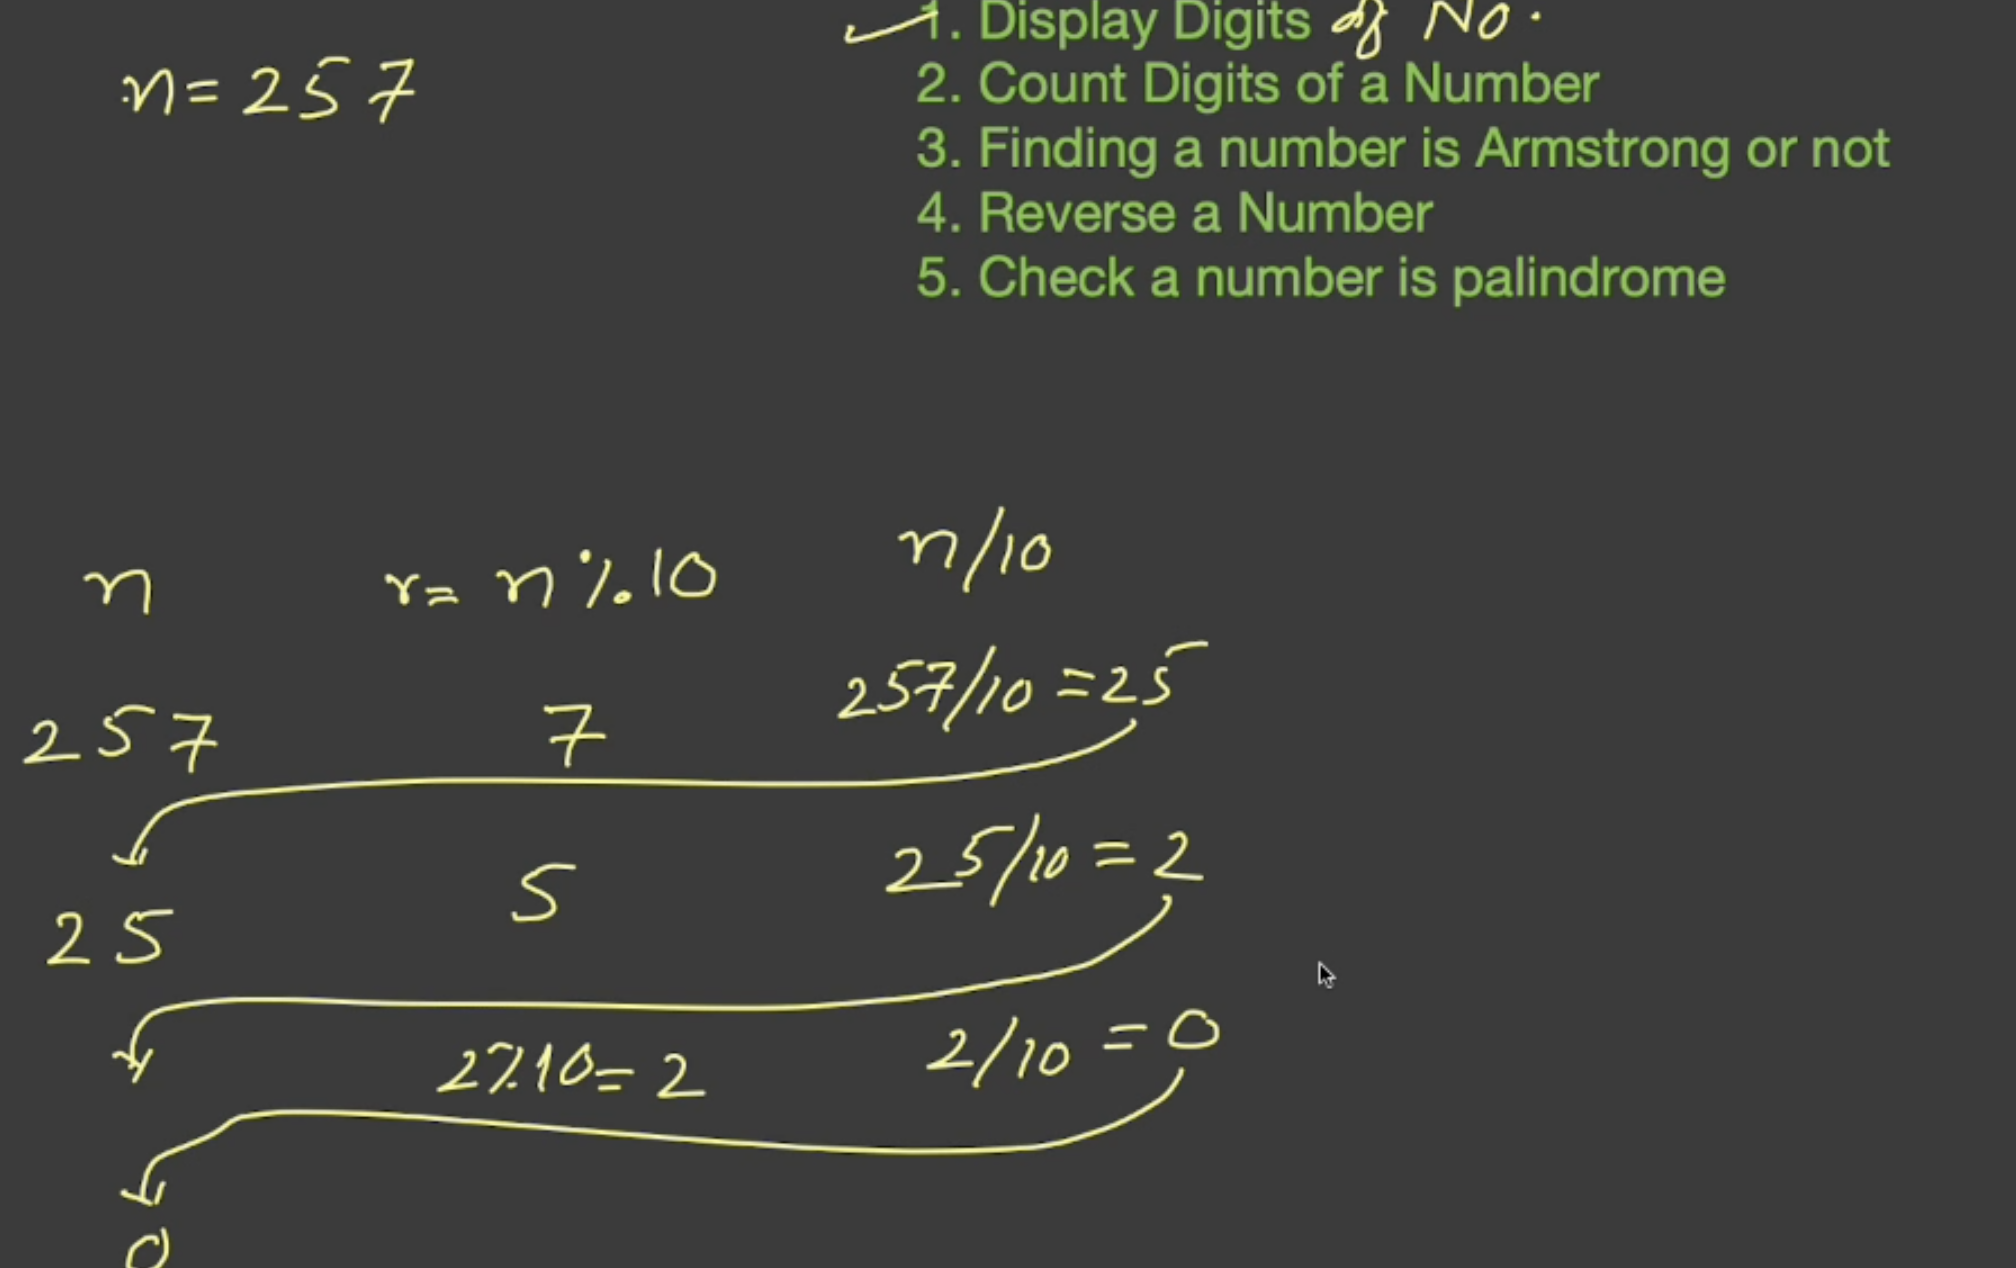 1. Display Digits of No.
n = 257
2. Count Digits of a Number
3. Finding a number is Armstrong or not
4. Reverse a Number
5. Check a number is palindrome
n r = n % 10 n/10
257 7 257/10 = 25
25 5 25/10 = 2
2%10 = 2 2/10 = 0
0